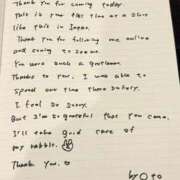 Thank you for coming today.
This is your first time at a show
like this in Japan.
Thank you for following me online
and coming to see me.
You were such a gentleman.
Thanks to you, I was able to
spend our time there Safely.
I feel So Sorry.
But I'm So grateful that you came.
I'll take good care of
my rabbit.
Thank you.
by Oto